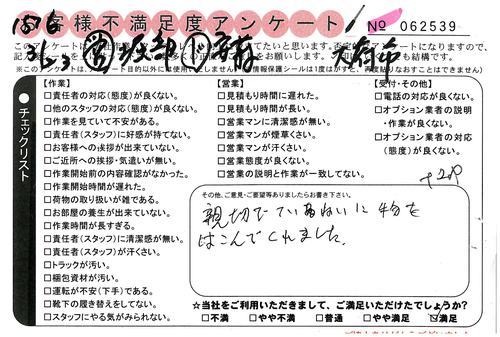 お客様不満足度アンケート
No 062539
【作業】
□責任者の対応(態度)が良くない。
□他のスタッフの対応(態度)が良くない。
□作業を見ていて不安がある。
□責任者(スタッフ)に好感が持てない。
□お客様への挨拶が出来ていない。
□ご近所への挨拶・気遣いが無い。
□作業開始前の内容確認がなかった。
□作業開始時間が遅れた。
□荷物の取り扱いが雑である。
□お部屋の養生が出来ていない。
□作業時間が長すぎる。
□責任者(スタッフ)に清潔感が無い。
□責任者(スタッフ)が汗くさい。
□トラックが汚い。
□梱包資材が汚い。
□運転が不安(下手)である。
□靴下の履き替えをしてない。
□スタッフにやる気がみられない。
【営業】
□見積もり時間に遅れた。
□見積もり時間が長い。
□営業マンに清潔感が無い。
□営業マンが煙草くさい。
□営業マンが汗くさい。
□営業態度が良くない。
□営業の説明と作業が一致してない。
【受付・その他】
□電話の対応が良くない。
□オプション業者の説明
・作業が良くない。
□オプション業者の対応
(態度)が良くない。
●チェックリスト
その他、ご意見・ご要望等ありましたらお書き下さい。
親切でていねいに物を
はこんでくれました。
☆当社をご利用いただきまして、ご満足いただけたでしょうか?
□不満 □やや不満 □普通 □やや満足 ☑満足